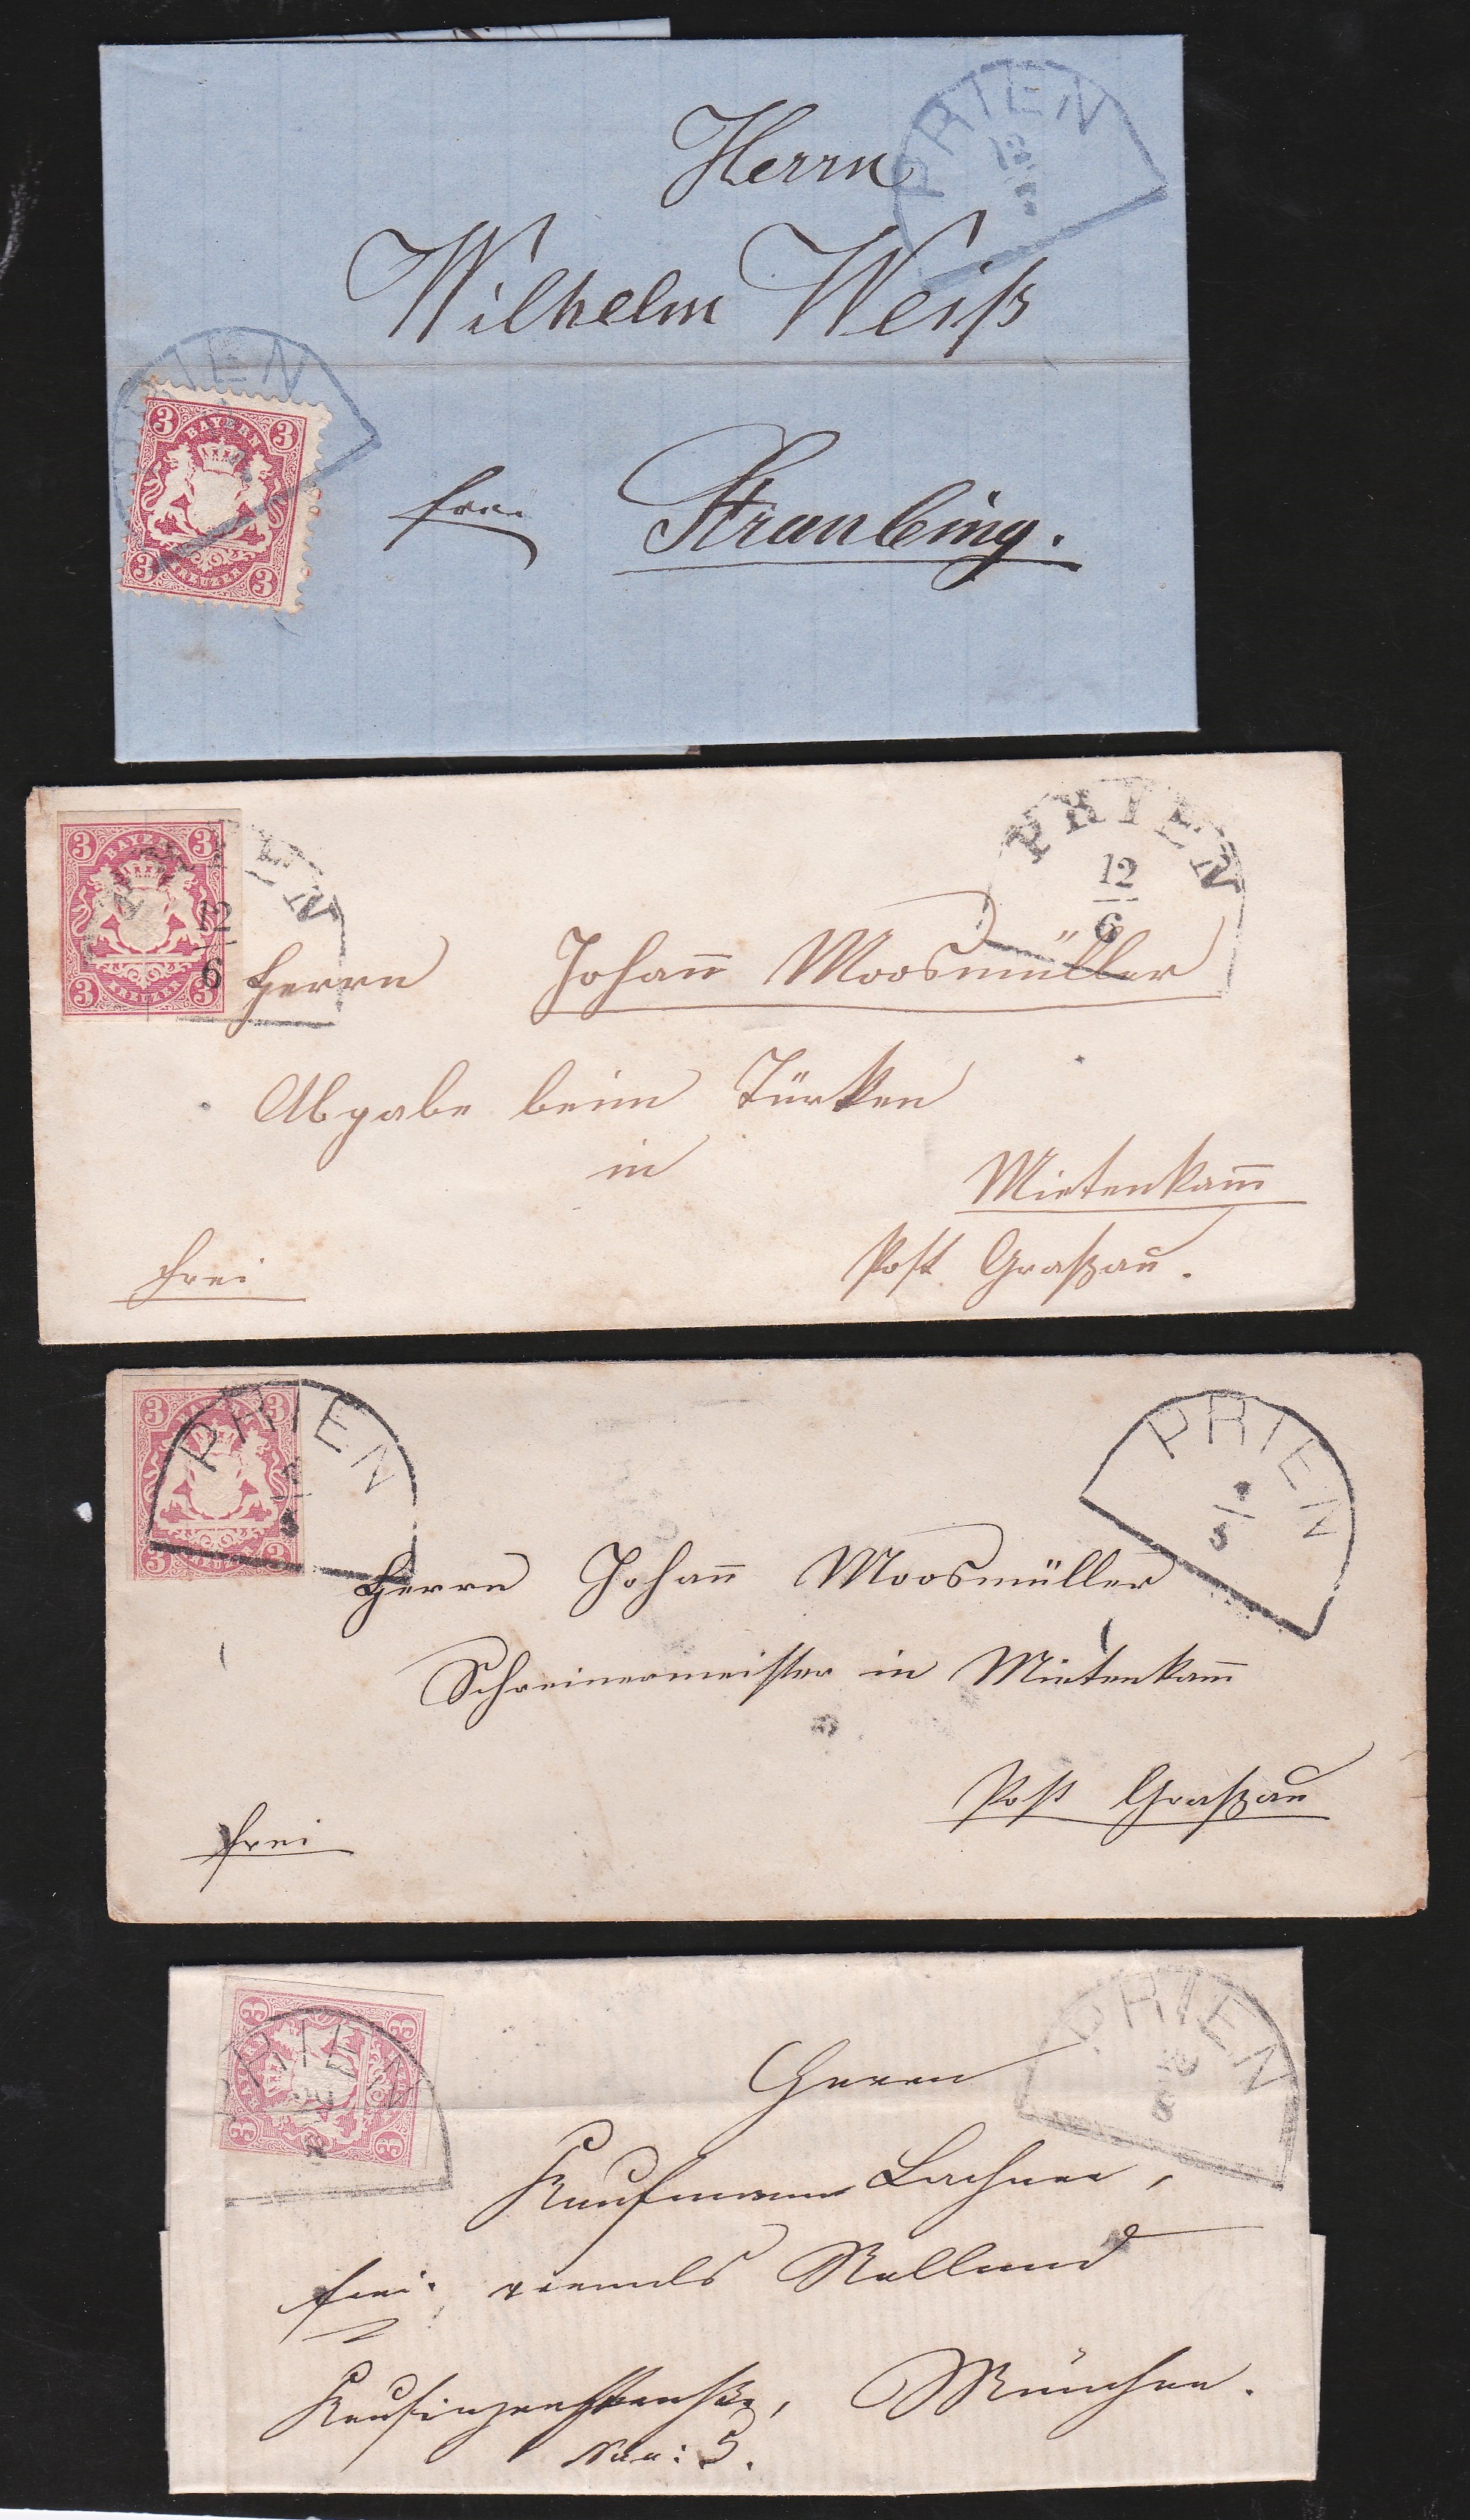 PRIEN
12
3
Herrn
Wilhelm Weiß
PRIEN
3 3
BAYERN
KREUZER
3 3
frei Straubing.
PRIEN
12
6
3 3
BAYERN
KREUZER
3 3
PRIEN
12
6
Herrn Johann Moosmüller
Abgabe beim Türken
in
Mietenkam̅
frei
Post Graßau.
PRIEN
5
3 3
BAYERN
KREUZER
3 3
PRIEN
Herrn Johan̅ Moosmüller
Schreinermeister in Mietenkam̅
Post Graßau
frei
3 3
3 3
PRIEN
PRIEN
8
Herrn
Kaufmann Lachner,
frei. vormals Rolland
Kaufingerstraße, München.
Nro: 5.